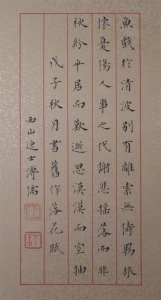 魚戲於清波別有離索無儔羈旅
懷憂傷人事之代謝悲搖落而非
秋紛平居而歎逝思漠漠而空抽
戊子秋月書舊作落花賦
西山逸士溥儒